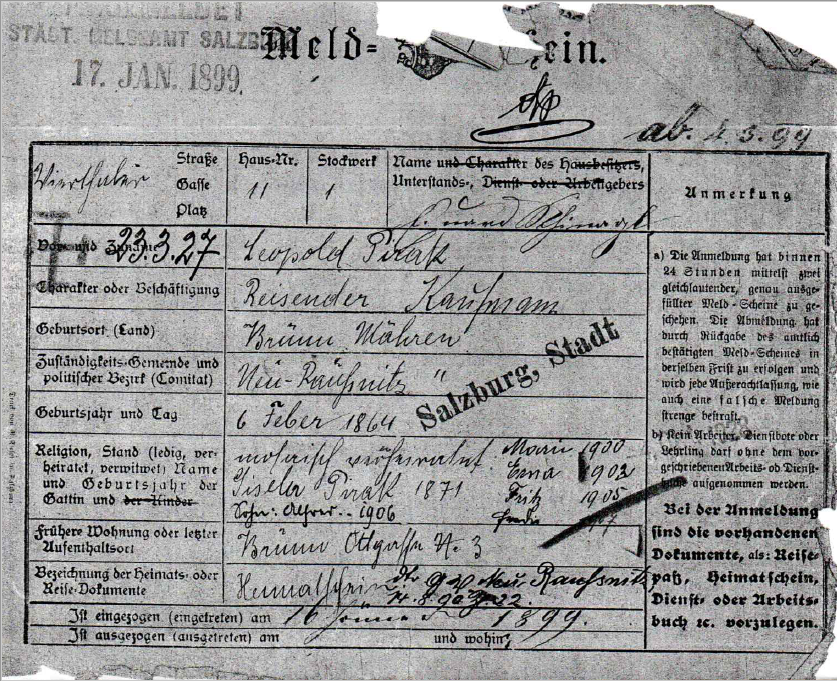 STÄDT. MELDEAMT SALZBURG
17. JAN. 1899
Meld- ein.
ab. 4.3.99
Vierthaler
Straße
Gasse
Platz
Haus-Nr.
11
Stockwerk
1
Name und Charakter des Hausbesitzers,
Unterstands-, Dienst- oder Arbeitgebers
Eduard
Anmerkung
Vor- und Zuname
23.3.27
Leopold Pirak
Charakter oder Beschäftigung
Reisender Kaufmann
Geburtsort (Land)
Brünn Mähren
Zuständigkeits-Gemeinde und
politischer Bezirk (Comitat)
Neu-Raußnitz "
Salzburg, Stadt
Geburtsjahr und Tag
6 Feber 1864
Religion, Stand (ledig, ver-
heiratet, verwitwet) Name
und Geburtsjahr der
Gattin und der Kinder
mosaisch verheiratet
Gisela Pirak 1871
Sohn: Alfred 1906
1900
Erna 1902
Fritz 1905
Frühere Wohnung oder letzter
Aufenthaltsort
Brünn
Bezeichnung der Heimats- oder
Reise-Dokumente
Heimatschein Neu Raussnitz
Ist eingezogen (eingetreten) am 16 Jänner 1899.
Ist ausgezogen (ausgetreten) am und wohin?
a) Die Anmeldung hat binnen
24 Stunden mittelst zwei
gleichlautender, genau ausge-
füllter Meld-Scheine zu ge-
schehen. Die Abmeldung hat
durch Rückgabe des amtlich
bestätigten Meld-Scheines in
derselben Frist zu erfolgen und
wird jede Außerachtlassung, wie
auch eine falsche Meldung
strenge bestraft.
b) Kein Arbeiter, Dienstbote oder
Lehrling darf ohne dem vor-
geschriebenen Arbeits- ob Dienst-
buche aufgenommen werden.
Bei der Anmeldung
sind die vorhandenen
Dokumente, als: Reise-
paß, Heimatschein,
Dienst- oder Arbeits-
buch ꝛc. vorzulegen.